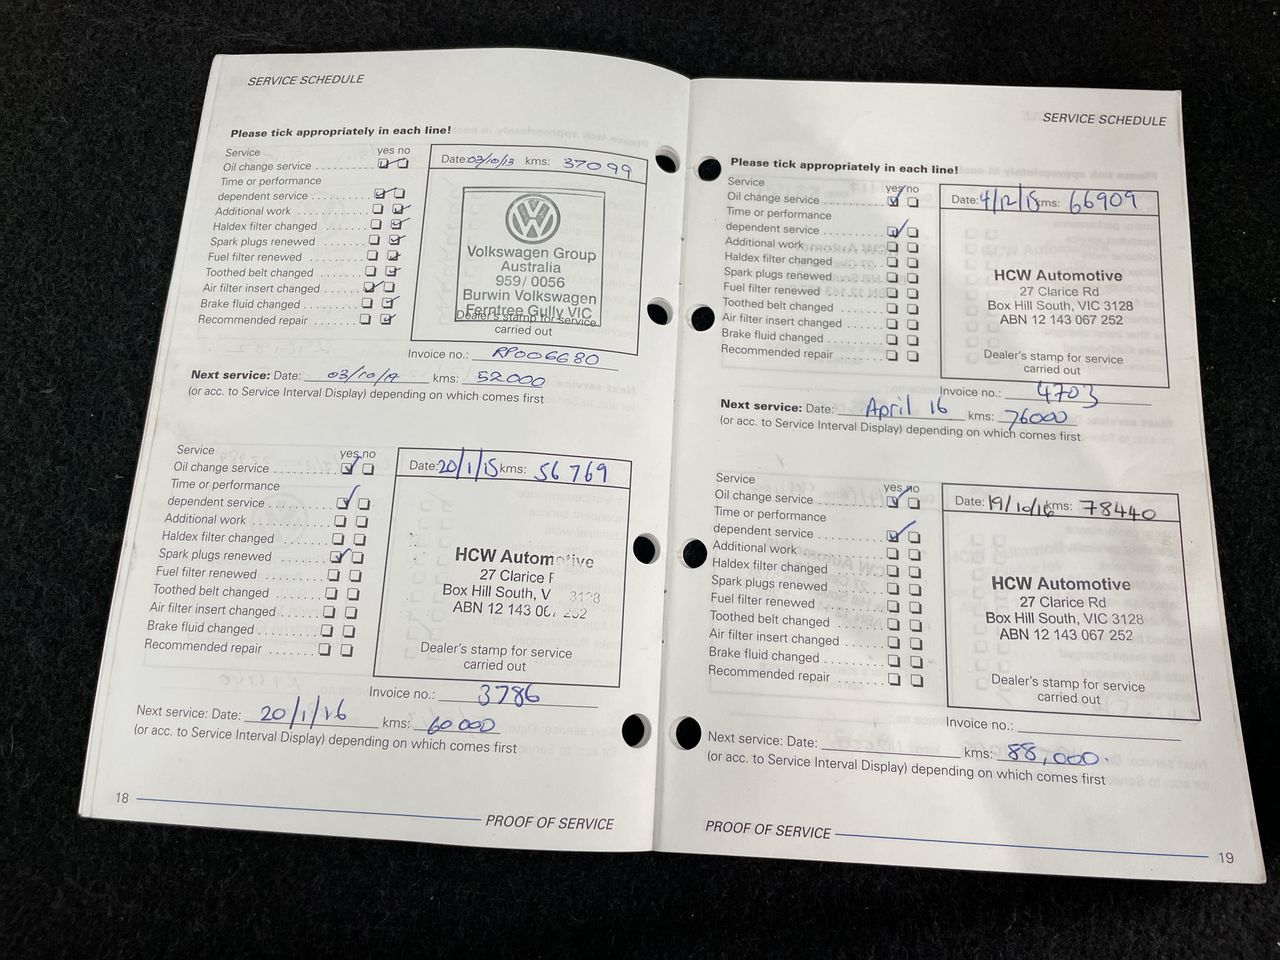 SERVICE SCHEDULE
Please tick appropriately in each line!
Service yes no
Oil change service
Time or performance
dependent service
Additional work
Haldex filter changed
Spark plugs renewed
Fuel filter renewed
Toothed belt changed
Air filter insert changed
Brake fluid changed
Recommended repair
Date: 03/10/13 kms: 37099
Volkswagen Group
Australia
959/ 0056
Burwin Volkswagen
Ferntree Gully VIC
Dealer's stamp for service
carried out
Invoice no.: RP006680
Next service: Date: 03/10/14 kms: 52000
(or acc. to Service Interval Display) depending on which comes first
Service yes no
Oil change service
Time or performance
dependent service
Additional work
Haldex filter changed
Spark plugs renewed
Fuel filter renewed
Toothed belt changed
Air filter insert changed
Brake fluid changed
Recommended repair
Date: 20/1/15 kms: 56769
HCW Automotive
27 Clarice R
Box Hill South, V 3128
ABN 12 143 067 252
Dealer's stamp for service
carried out
Invoice no.: 3786
Next service: Date: 20/1/16 kms: 60000
(or acc. to Service Interval Display) depending on which comes first
18
PROOF OF SERVICE
SERVICE SCHEDULE
Please tick appropriately in each line!
Service yes no
Oil change service
Time or performance
dependent service
Additional work
Haldex filter changed
Spark plugs renewed
Fuel filter renewed
Toothed belt changed
Air filter insert changed
Brake fluid changed
Recommended repair
Date: 4/12/15 kms: 66909
HCW Automotive
27 Clarice Rd
Box Hill South, VIC 3128
ABN 12 143 067 252
Dealer's stamp for service
carried out
Invoice no.: 4703
Next service: Date: April 16 kms: 76000
(or acc. to Service Interval Display) depending on which comes first
Service yes no
Oil change service
Time or performance
dependent service
Additional work
Haldex filter changed
Spark plugs renewed
Fuel filter renewed
Toothed belt changed
Air filter insert changed
Brake fluid changed
Recommended repair
Date: 19/10/16 kms: 78440
HCW Automotive
27 Clarice Rd
Box Hill South, VIC 3128
ABN 12 143 067 252
Dealer's stamp for service
carried out
Invoice no.:
Next service: Date: kms: 88,000.
(or acc. to Service Interval Display) depending on which comes first
PROOF OF SERVICE
19